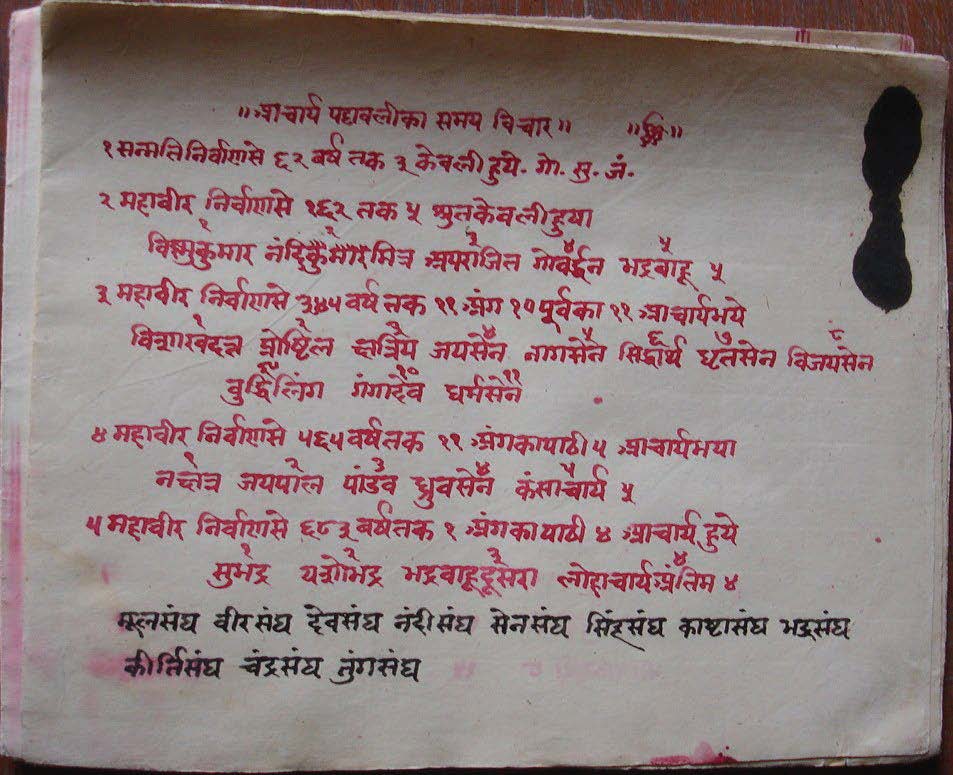 ॥ आचार्य पद्यवलीका समय विचार॥ ॥श्री॥
१ सन्मतिनिर्वाणसे ६२ वर्ष तक ३ केवली हुये. गो. सु. जं.
२ महावीर निर्वाणसे १६२ तक ५ श्रुतकेवलीहुया
विष्णुकुमार नंदि मित्र अपराजित गोवर्द्धन भद्रबाहू ५
३ महावीर निर्वाणसे ३४५ वर्ष तक ११ अंग १० पूर्वका ११ आचार्यभये
प्रोष्टिल क्षत्रिय जयसेन नागसेन सिद्धार्थ धृतसेन विजयसेन
बुद्धिलिंग गंगादेव धर्मसेन
४ महावीर निर्वाणसे ५६५ वर्षतक ११ अंगकापाठी ५ आचार्यभया
नक्षत्र जयपाल पांडव ध्रुवसेन कंसाचार्य ५
५ महावीर निर्वाणसे ६८३ वर्षतक १ अंगकापाठी ४ आचार्य हुये
सुभद्र यशोभद्र भद्रबाहूदूसरा लोहाचार्य अंतिम ४
मूलसंघ वीरसंघ देवसंघ नंदीसंघ सेनसंघ सिंहसंघ काष्टासंघ भद्रसंघ
कीर्तिसंघ चंद्रसंघ तुंगसंघ